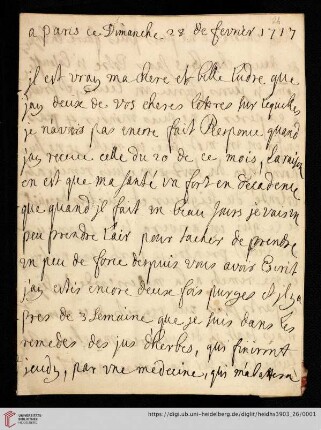 a paris ce Dimanche 28 de fevrier 1717
il est vray ma chere et belle que
j'ay deux de vos cheres lettres sur lequelles
je n'avois pas encore fait Responce quand
j'ay receue celle du 20 de ce mois, la raison
en est que ma santé va fort en decadence
que quand il fait un beau Jour je vais un
peu prendre l'air pour tacher de prendre
un peu de force despuis vous avoir Escrit
j'ay estés encore deux fois purgés et il y a
pres de 3 semaine que je suis dans les
remedes des jus d'herbes, qui finirront
jeudy, par une medecine, qui
UNIVERSITÄTS-
BIBLIOTHEK
HEIDELBERG
https://digi.ub.uni-heidelberg.de/diglit/heidhs3903_26/0001